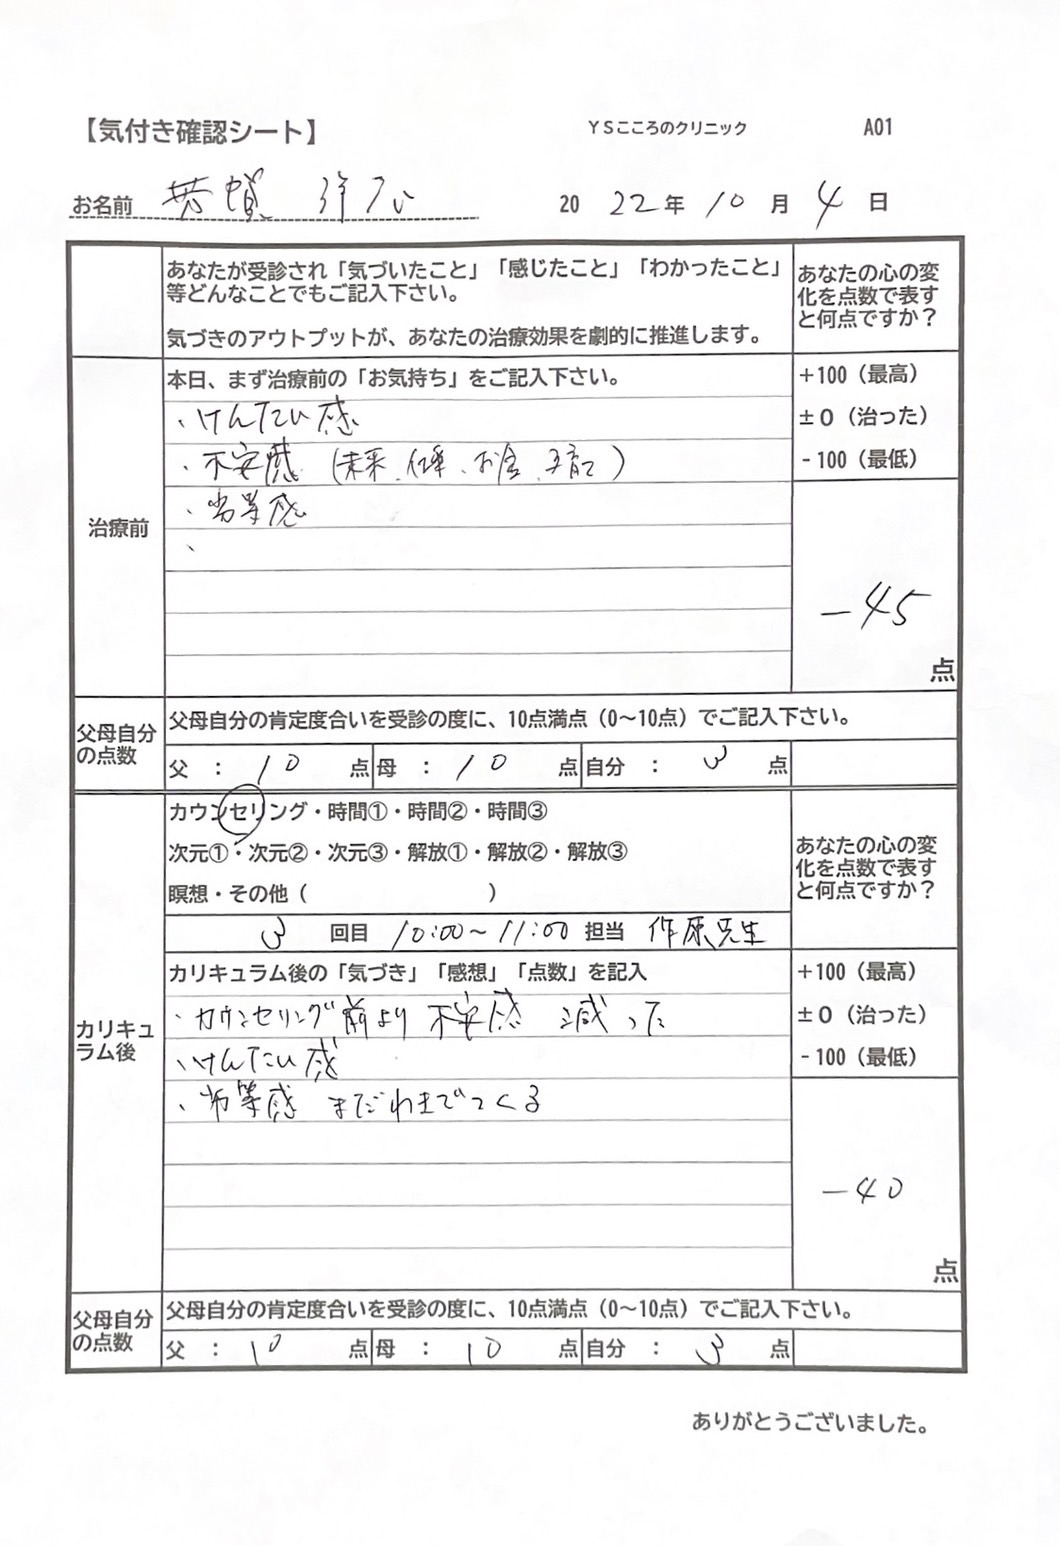 【気付き確認シート】
YSこころのクリニック
A01
お名前
20 22年 10 月 4 日
あなたが受診され「気づいたこと」「感じたこと」「わかったこと」
等どんなことでもご記入下さい。
気づきのアウトプットが、あなたの治療効果を劇的に推進します。
あなたの心の変
化を点数で表す
と何点ですか？
治療前
本日、まず治療前の「お気持ち」をご記入下さい。
、けんたい感
、不安感（未来、仕事、お金、子育て）
、劣等感
、
+100（最高）
±0（治った）
-100（最低）
-45
点
父母自分
の点数
父母自分の肯定度合いを受診の度に、10点満点（0～10点）でご記入下さい。
父 ： 10 点 母 ： 10 点 自分 ： 3 点
カリキュ
ラム後
カウンセリング・時間①・時間②・時間③
次元①・次元②・次元③・解放①・解放②・解放③
瞑想・その他（ ）
3 回目 10:00～11:00 担当 作原先生
あなたの心の変
化を点数で表す
と何点ですか？
カリキュラム後の「気づき」「感想」「点数」を記入
、カウンセリング前より 不安感 減った
、けんたい感
、劣等感 まだわまでてくる
+100（最高）
±0（治った）
-100（最低）
-40
点
父母自分
の点数
父母自分の肯定度合いを受診の度に、10点満点（0～10点）でご記入下さい。
父 ： 10 点 母 ： 10 点 自分 ： 3 点
ありがとうございました。